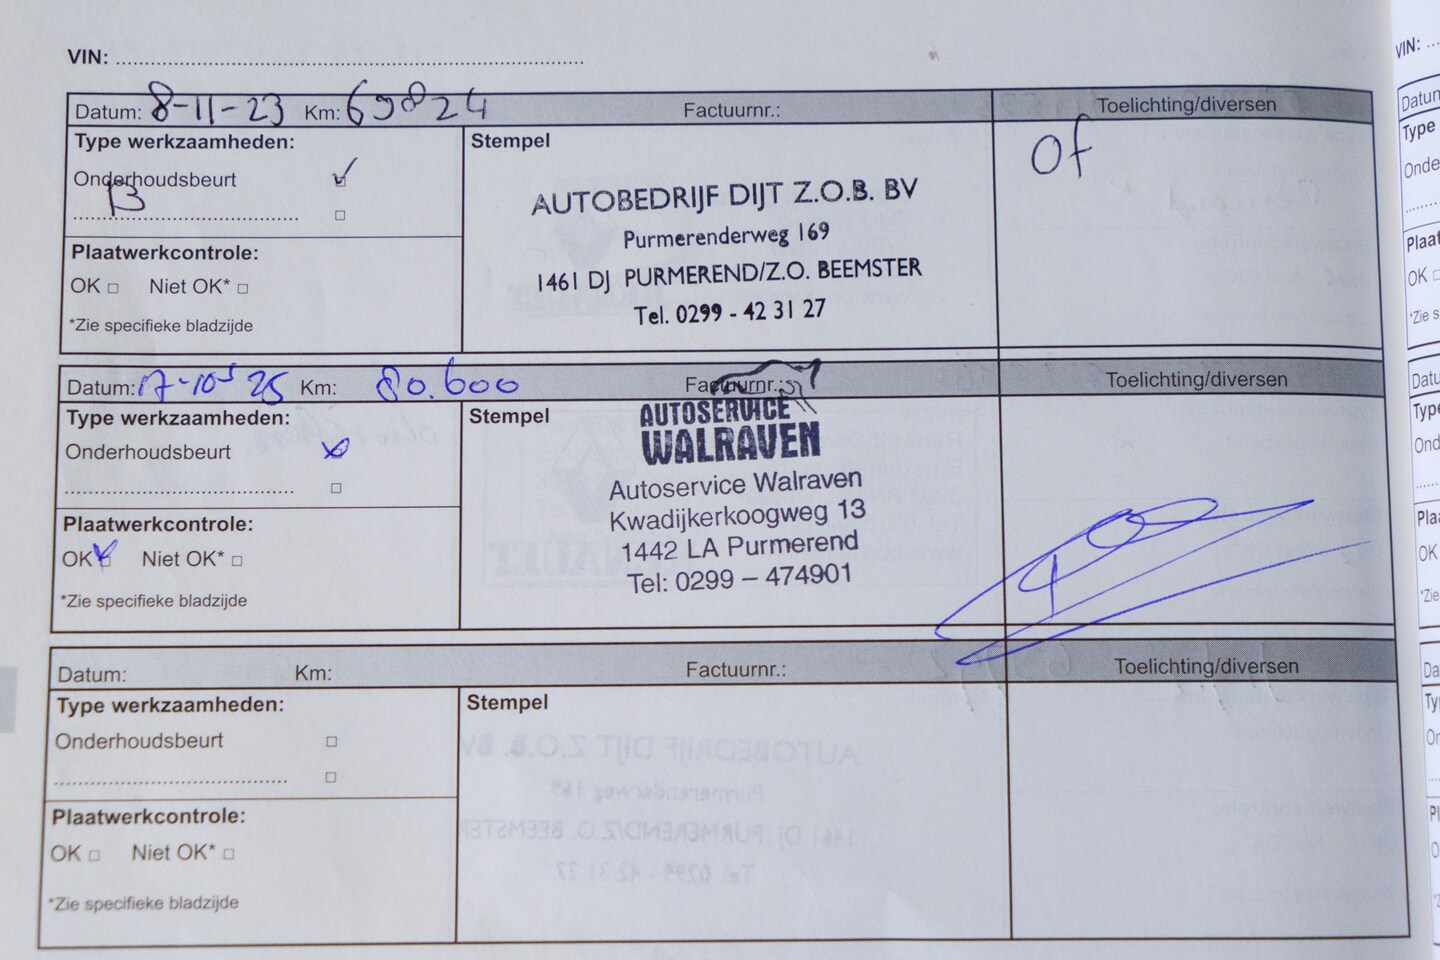 VIN:
Datum: 8-11-23 Km: 69824 Factuurnr.: Toelichting/diversen
Type werkzaamheden: Stempel
Of
Onderhoudsbeurt
B
AUTOBEDRIJF DIJT Z.O.B. BV
Purmerenderweg 169
1461 DJ PURMEREND/Z.O. BEEMSTER
Tel. 0299 - 42 31 27
Plaatwerkcontrole:
OK Niet OK*
*Zie specifieke bladzijde
Datum: 17-10-25 Km: 80.600 Factuurnr.: Toelichting/diversen
Type werkzaamheden: Stempel
Onderhoudsbeurt
AUTOSERVICE
WALRAVEN
Autoservice Walraven
Kwadijkerkoogweg 13
1442 LA Purmerend
Tel: 0299 – 474901
Plaatwerkcontrole:
OK Niet OK*
*Zie specifieke bladzijde
Datum: Km: Factuurnr.: Toelichting/diversen
Type werkzaamheden: Stempel
Onderhoudsbeurt
Plaatwerkcontrole:
OK Niet OK*
*Zie specifieke bladzijde
VIN: